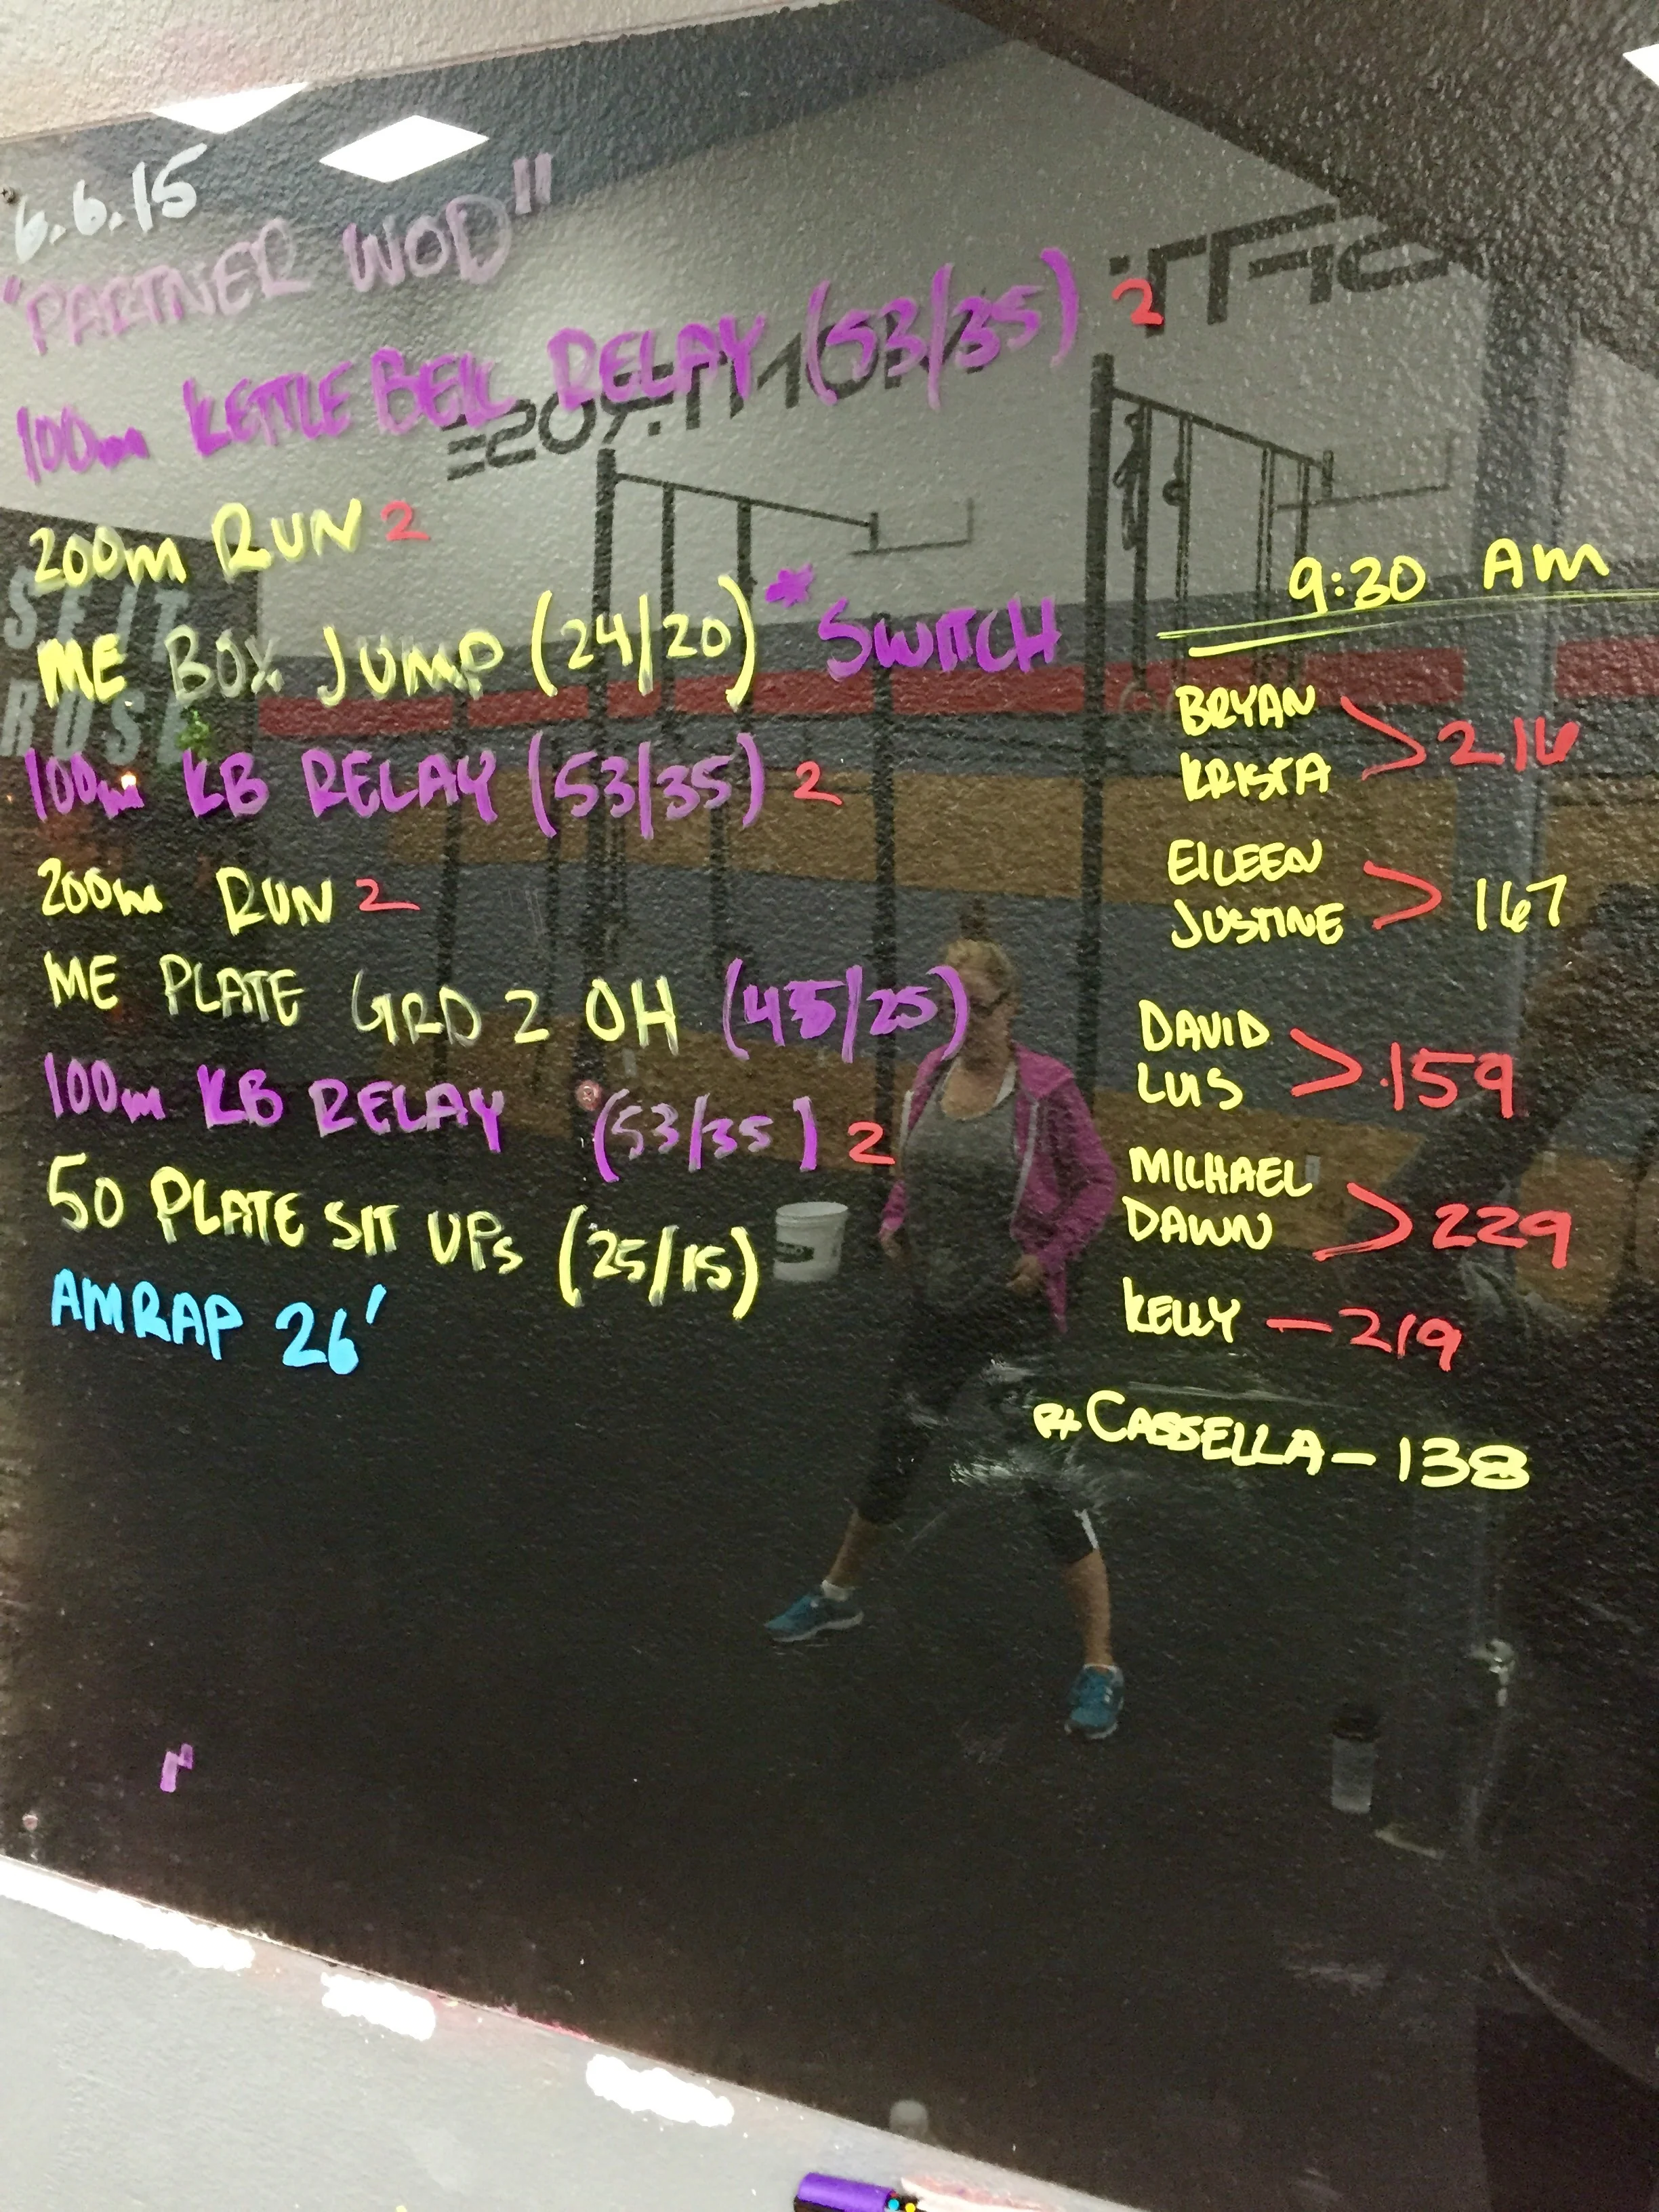 6.6.15
"PARTNER WOD"
100m KETTLE BELL RELAY (53/35) 2
200m RUN 2
ME BOX JUMP (24/20) * SWITCH
100m KB RELAY (53/35) 2
200m RUN 2
ME PLATE GRD 2 OH (45/25)
100m KB RELAY (53/35) 2
50 PLATE SIT UPs (25/15)
AMRAP 26'
9:30 AM
BRYAN
KRISTA > 216
EILEEN
JUSTINE > 167
DAVID
LUIS > 159
MICHAEL
DAWN > 229
KELLY — 219
CASSELLA — 138